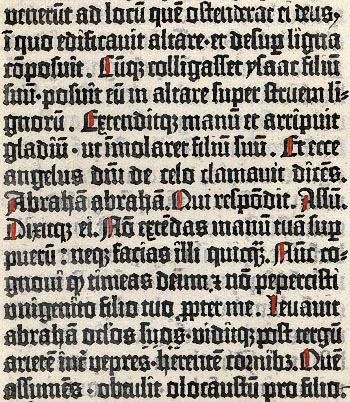 venerūt ad locū quē ostenderat ei deus,
ī quo edificauit altare· et desup ligna
cōposuit. Cūq; colligasset ysaac filiū
suū· posuit eū in altare super struem li-
gnorū. Extenditq; manū et arripuit
gladiū· ut īmolaret filiū suū. Et ecce
angelus dn̄i de celo clamauit dicēs.
Abrahā abrahā. Qui respōdit. Assū.
Dixitq; ei. Nō extēdas manū tuā sup
puerū: neq; facias illi quicq̄;. Nūc co-
gnoui ꝙ timeas deum: ⁊ nō pepercisti
vnigenito filio tuo ꝓpter me. Leuauit
abrahā oclos suos· viditq; post tergū
arietē int̄ vepres· herentē cornib;. Quē
assumēs· obtulit olocaustū pro filio.